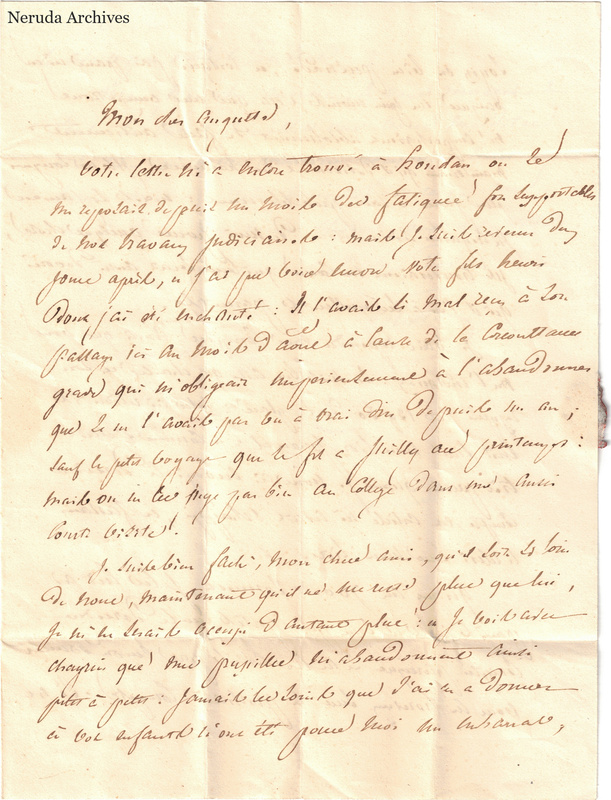 Neruda Archives
Mon cher auguste,
Votre lettre m'a encore trouvé à houdan ou je
me reposais depuis un mois des fatigues
de nos travaux judiciaires : mais je suis revenu
jours après, et j'ai pu voir encore votre fils henri
dont j'ai été enchanté : Je l'avais si mal reçu à son
passage ici au mois d'août à cause de la circonstance
grave qui m'obligeait impérieusement à l'abandonner
que je ne l'avais pas vu à vrai dire depuis un an ;
sauf le petit voyage que je fis a juilly au printemps :
mais on ne se juge pas bien au Collège dans une aussi
courte visite.
Je suis bien faché, mon cher ami, qu'il soit si loin
de nous, maintenant qu'il ne me reste plus que lui,
je m'en serais occupé d'autant plus : et je vois avec
chagrin que mes pupilles m'abandonnent ainsi
petit à petit : jamais les soins que j'ai eu a donner
à vos enfants n'ont été pour moi un embarras,